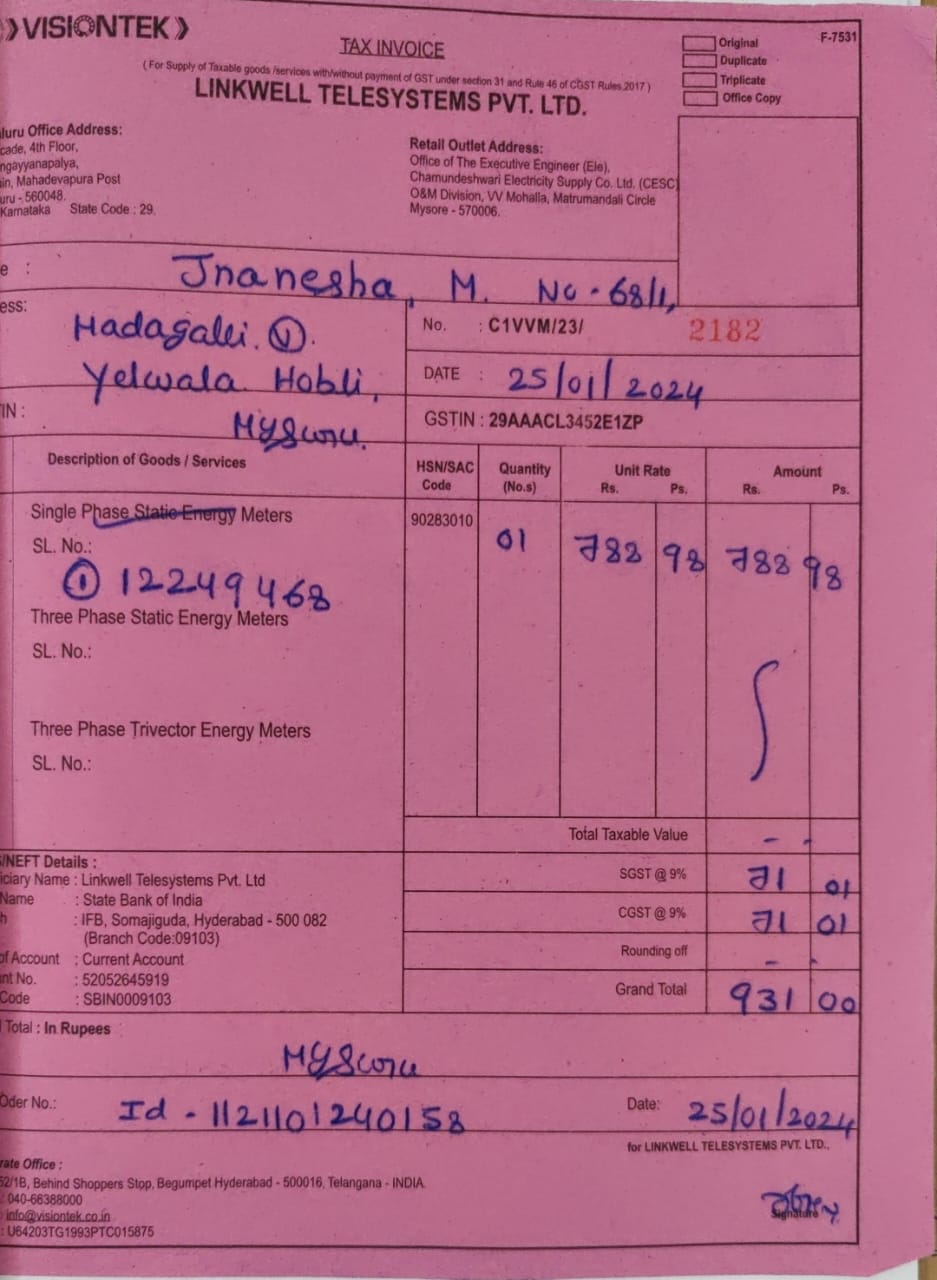 VISIONTEK
TAX INVOICE
( For Supply of Taxable goods /services with/without payment of GST under section 31 and Rule 46 of CGST Rules,2017 )
LINKWELL TELESYSTEMS PVT. LTD.
Original
Duplicate
Triplicate
Office Copy
F-7531
luru Office Address:
cade, 4th Floor,
ngayyanapalya,
in, Mahadevapura Post
uru - 560048.
Karnataka State Code : 29.
Retail Outlet Address:
Office of The Executive Engineer (Ele),
Chamundeshwari Electricity Supply Co. Ltd. (CESC)
O&M Division, VV Mohalla, Matrumandali Circle
Mysore - 570006.
e : Jnanesha, M. No - 68/1,
ess: Hadagalli. (V).
Yelwala Hobli,
IN : Mysuru.
No. : C1VVM/23/ 2182
DATE : 25/01/2024
GSTIN : 29AAACL3452E1ZP
Description of Goods / Services HSN/SAC Code Quantity (No.s) Unit Rate Rs. Ps. Amount Rs. Ps.
Single Phase Static Energy Meters 90283010 01 788 98 788 98
SL. No.:
① 12249468
Three Phase Static Energy Meters
SL. No.:
Three Phase Trivector Energy Meters
SL. No.:
Total Taxable Value - -
SGST @ 9% 71 01
CGST @ 9% 71 01
Rounding off - -
Grand Total 931 00
/NEFT Details :
iciary Name : Linkwell Telesystems Pvt. Ltd
Name : State Bank of India
h : IFB, Somajiguda, Hyderabad - 500 082
(Branch Code:09103)
of Account : Current Account
nt No. : 52052645919
Code : SBIN0009103
Total : In Rupees
Mysuru
Oder No.: Id - 1121101240158 Date: 25/01/2024
for LINKWELL TELESYSTEMS PVT. LTD.,
rate Office :
52/1B, Behind Shoppers Stop, Begumpet Hyderabad - 500016, Telangana - INDIA
: 040-66388000
info@visiontek.co.in
: U64203TG1993PTC015875
Signature